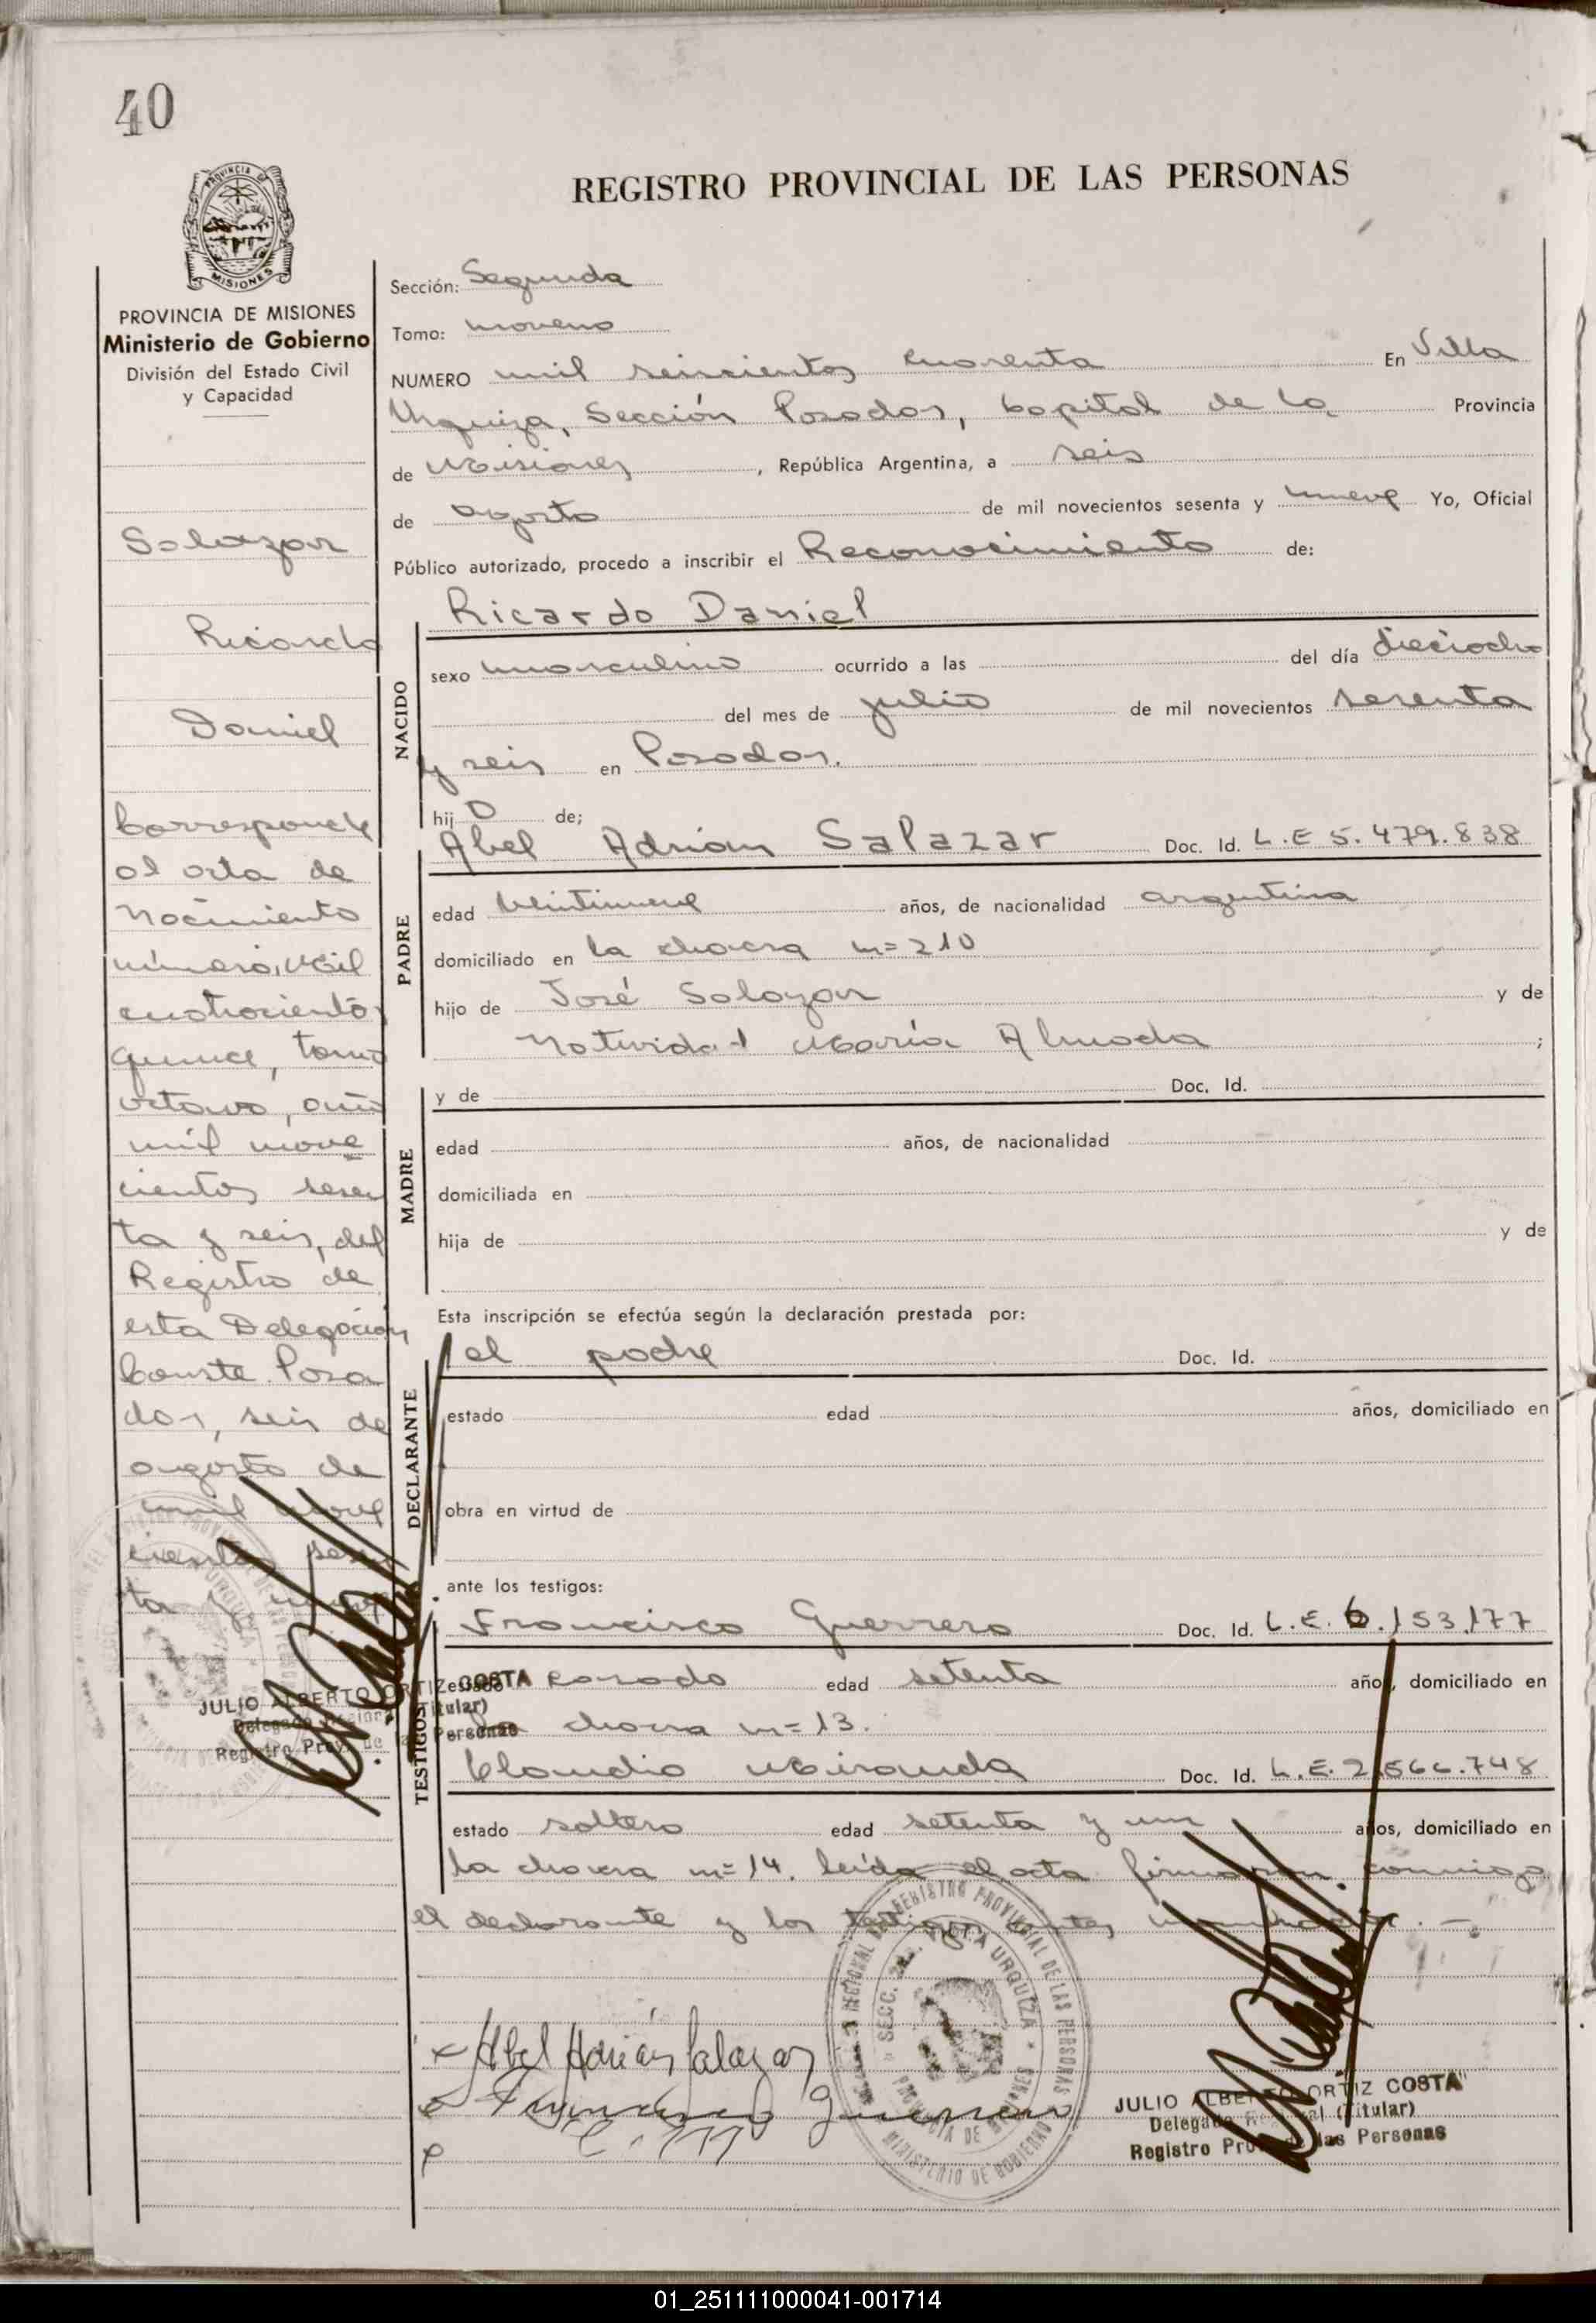 40
PROVINCIA DE MISIONES
REGISTRO PROVINCIAL DE LAS PERSONAS
PROVINCIA DE MISIONES
Ministerio de Gobierno
División del Estado Civil
y Capacidad
Salazar
Ricardo
Daniel
Corresponde
al acta de
Nacimiento
número, Mil
cuatrocientos
quince, tomo
octavo, año
mil nove
cientos sesen
ta y seis, del
Registro de
esta Delegación
Conste. Posa
das, seis de
agosto de
mil nove
cientos sesen
ta y nueve
JULIO ALBERTO ORTIZ COSTA
Delegado Regional (Titular)
Registro Prov. de las Personas
Sección: Segunda
Tomo: noveno
NUMERO mil seiscientos cuarenta En Villa
Urquiza, Sección Posadas, Capital de la Provincia
de Misiones, República Argentina, a seis
de agosto de mil novecientos sesenta y nueve Yo, Oficial
Público autorizado, procedo a inscribir el Reconocimiento de:
NACIDO
Ricardo Daniel
sexo masculino ocurrido a las del día dieciocho
del mes de julio de mil novecientos sesenta
y seis en Posadas.
hijo de;
PADRE
Abel Adrián Salazar Doc. Id. L.E 5.479.838
edad veintinueve años, de nacionalidad argentina
domiciliado en la chacra n= 210
hijo de José Salazar y de
Natividad María Almada ;
MADRE
y de Doc. Id.
edad años, de nacionalidad
domiciliada en
hija de y de
Esta inscripción se efectúa según la declaración prestada por:
DECLARANTE
el padre Doc. Id.
estado edad años, domiciliado en
obra en virtud de
ante los testigos:
TESTIGOS
Francisco Guerrero Doc. Id. L.E. 6.153.177
estado casado edad setenta años, domiciliado en
la chacra n= 13.
Claudio Miranda Doc. Id. L.E. 2.566.748
estado soltero edad setenta y un años, domiciliado en
la chacra n= 14. leída el acta firmaron conmigo
el declarante y los testigos antes
REGIONAL DEL REGISTRO PROVINCIAL DE LAS PERSONAS
SECC. 2a. VILLA URQUIZA
PROVINCIA DE MISIONES
MINISTERIO DE GOBIERNO
x Abel Adrián Salazar
x Francisco Guerrero
JULIO ALBERTO ORTIZ COSTA
Delegado Regional (Titular)
Registro Prov. de las Personas
01_251111000041-001714